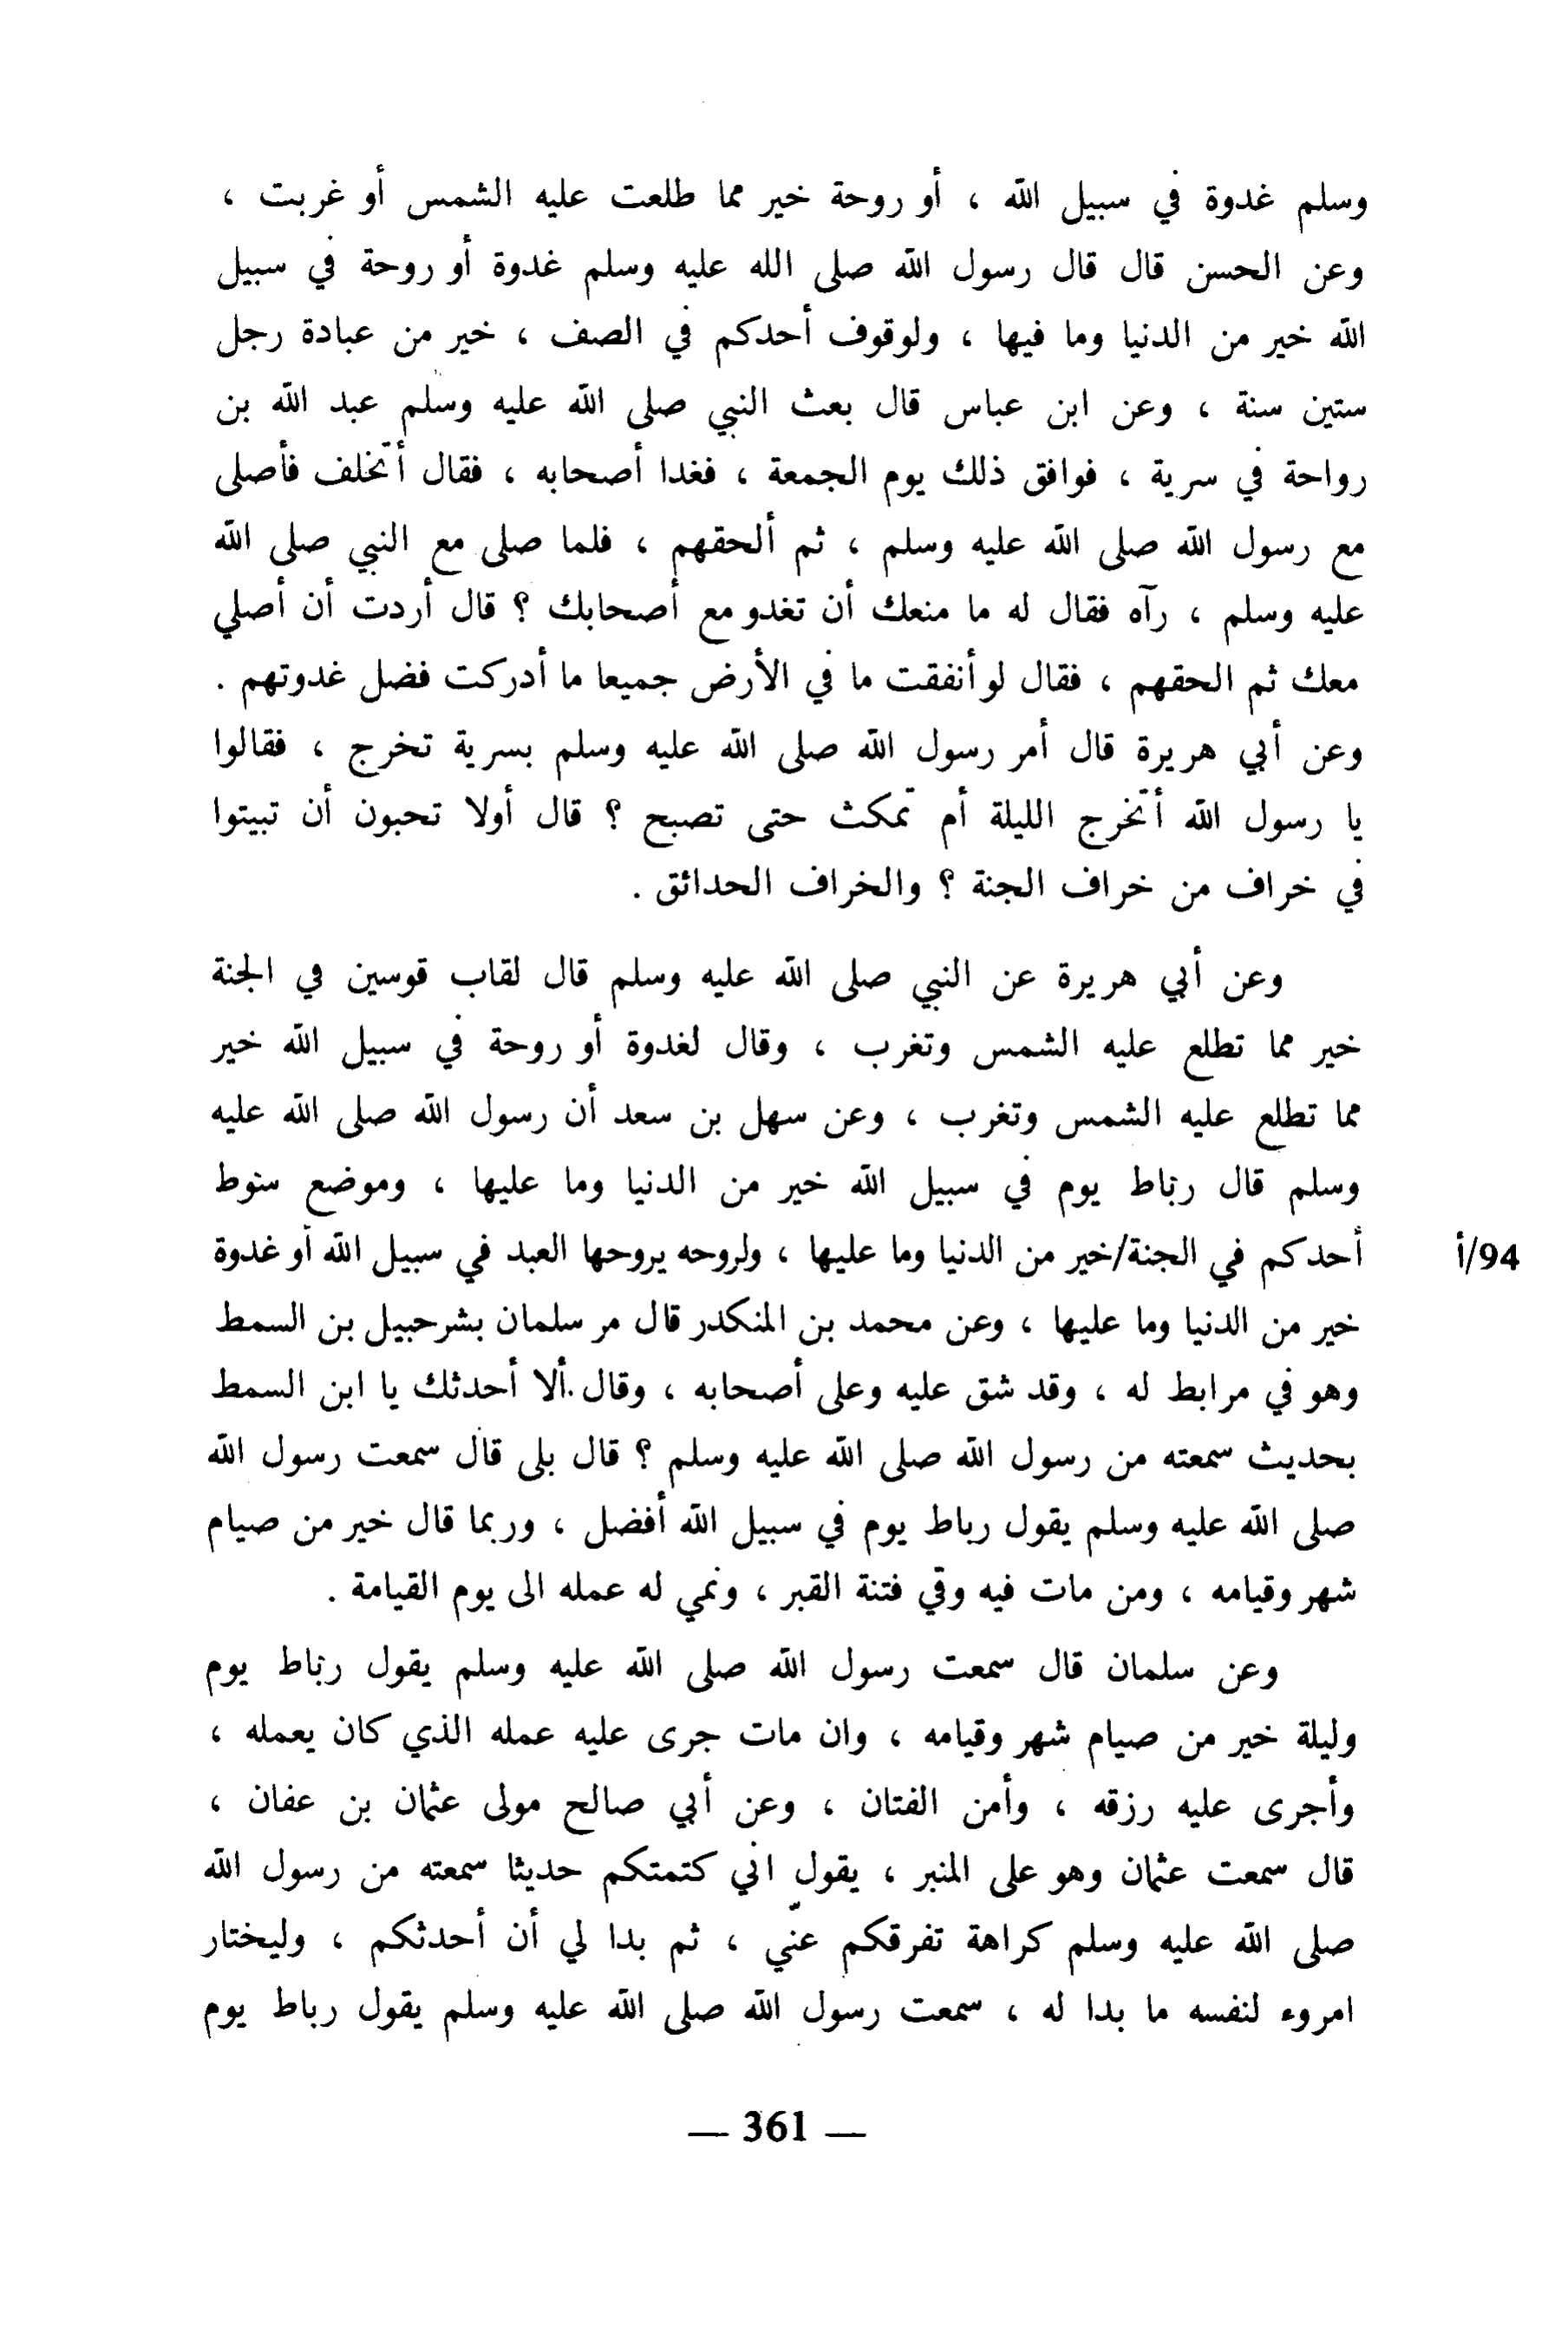 وسلم غدوة في سبيل الله ، أو روحة خير مما طلعت عليه الشمس أو غربت ،
وعن الحسن قال قال رسول الله صلى الله عليه وسلم غدوة أو روحة في سبيل
الله خير من الدنيا وما فيها ، ولوقوف أحدكم في الصف ، خير من عبادة رجل
ستين سنة ، وعن ابن عباس قال بعث النبي صلى الله عليه وسلم عبد الله بن
رواحة في سرية ، فوافق ذلك يوم الجمعة ، فغدا أصحابه ، فقال أتخلف فأصلى
مع رسول الله صلى الله عليه وسلم ، ثم ألحقهم ، فلما صلى مع النبي صلى الله
عليه وسلم ، رآه فقال له ما منعك أن تغدو مع أصحابك ؟ قال أردت أن أصلي
معك ثم الحقهم ، فقال لو أنفقت ما في الأرض جميعا ما أدركت فضل غدوتهم .
وعن أبي هريرة قال أمر رسول الله صلى الله عليه وسلم بسرية تخرج ، فقالوا
يا رسول الله أتخرج الليلة أم تمكث حتى تصبح ؟ قال أولا تحبون أن تبيتوا
في خراف من خراف الجنة ؟ والخراف الحدائق .
وعن أبي هريرة عن النبي صلى الله عليه وسلم قال لقاب قوسين في الجنة
خير مما تطلع عليه الشمس وتغرب ، وقال لغدوة أو روحة في سبيل الله خير
مما تطلع عليه الشمس وتغرب ، وعن سهل بن سعد أن رسول الله صلى الله عليه
وسلم قال رباط يوم في سبيل الله خير من الدنيا وما عليها ، وموضع سوط
أحدكم في الجنة/خير من الدنيا وما عليها ، ولروحه يروحها العبد في سبيل الله أو غدوة
94/أ
خير من الدنيا وما عليها ، وعن محمد بن المنكدر قال مر سلمان بشرحبيل بن السمط
وهو في مرابط له ، وقد شق عليه وعلى أصحابه ، وقال ألا أحدثك يا ابن السمط
بحديث سمعته من رسول الله صلى الله عليه وسلم ؟ قال بلى قال سمعت رسول الله
صلى الله عليه وسلم يقول رباط يوم في سبيل الله أفضل ، وربما قال خير من صيام
شهر وقيامه ، ومن مات فيه وقي فتنة القبر ، ونمي له عمله الى يوم القيامة .
وعن سلمان قال سمعت رسول الله صلى الله عليه وسلم يقول رباط يوم
وليلة خير من صيام شهر وقيامه ، وان مات جرى عليه عمله الذي كان يعمله ،
وأجرى عليه رزقه ، وأمن الفتان ، وعن أبي صالح مولى عثمان بن عفان ،
قال سمعت عثمان وهو على المنبر ، يقول اني كتمتكم حديثا سمعته من رسول الله
صلى الله عليه وسلم كراهة تفرقكم عنّي ، ثم بدا لي أن أحدثكم ، وليختار
امروء لنفسه ما بدا له ، سمعت رسول الله صلى الله عليه وسلم يقول رباط يوم
— 361 —